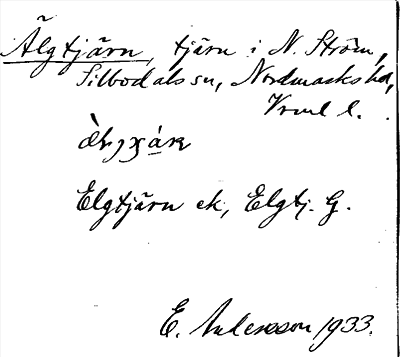 Älgtjärn, tjärn i N. Ström,
Silbodals sn, Nordmarks hd,
Vrml l.
Elgtjärn ek, Elgtj. G.
E. Andersson 1933.